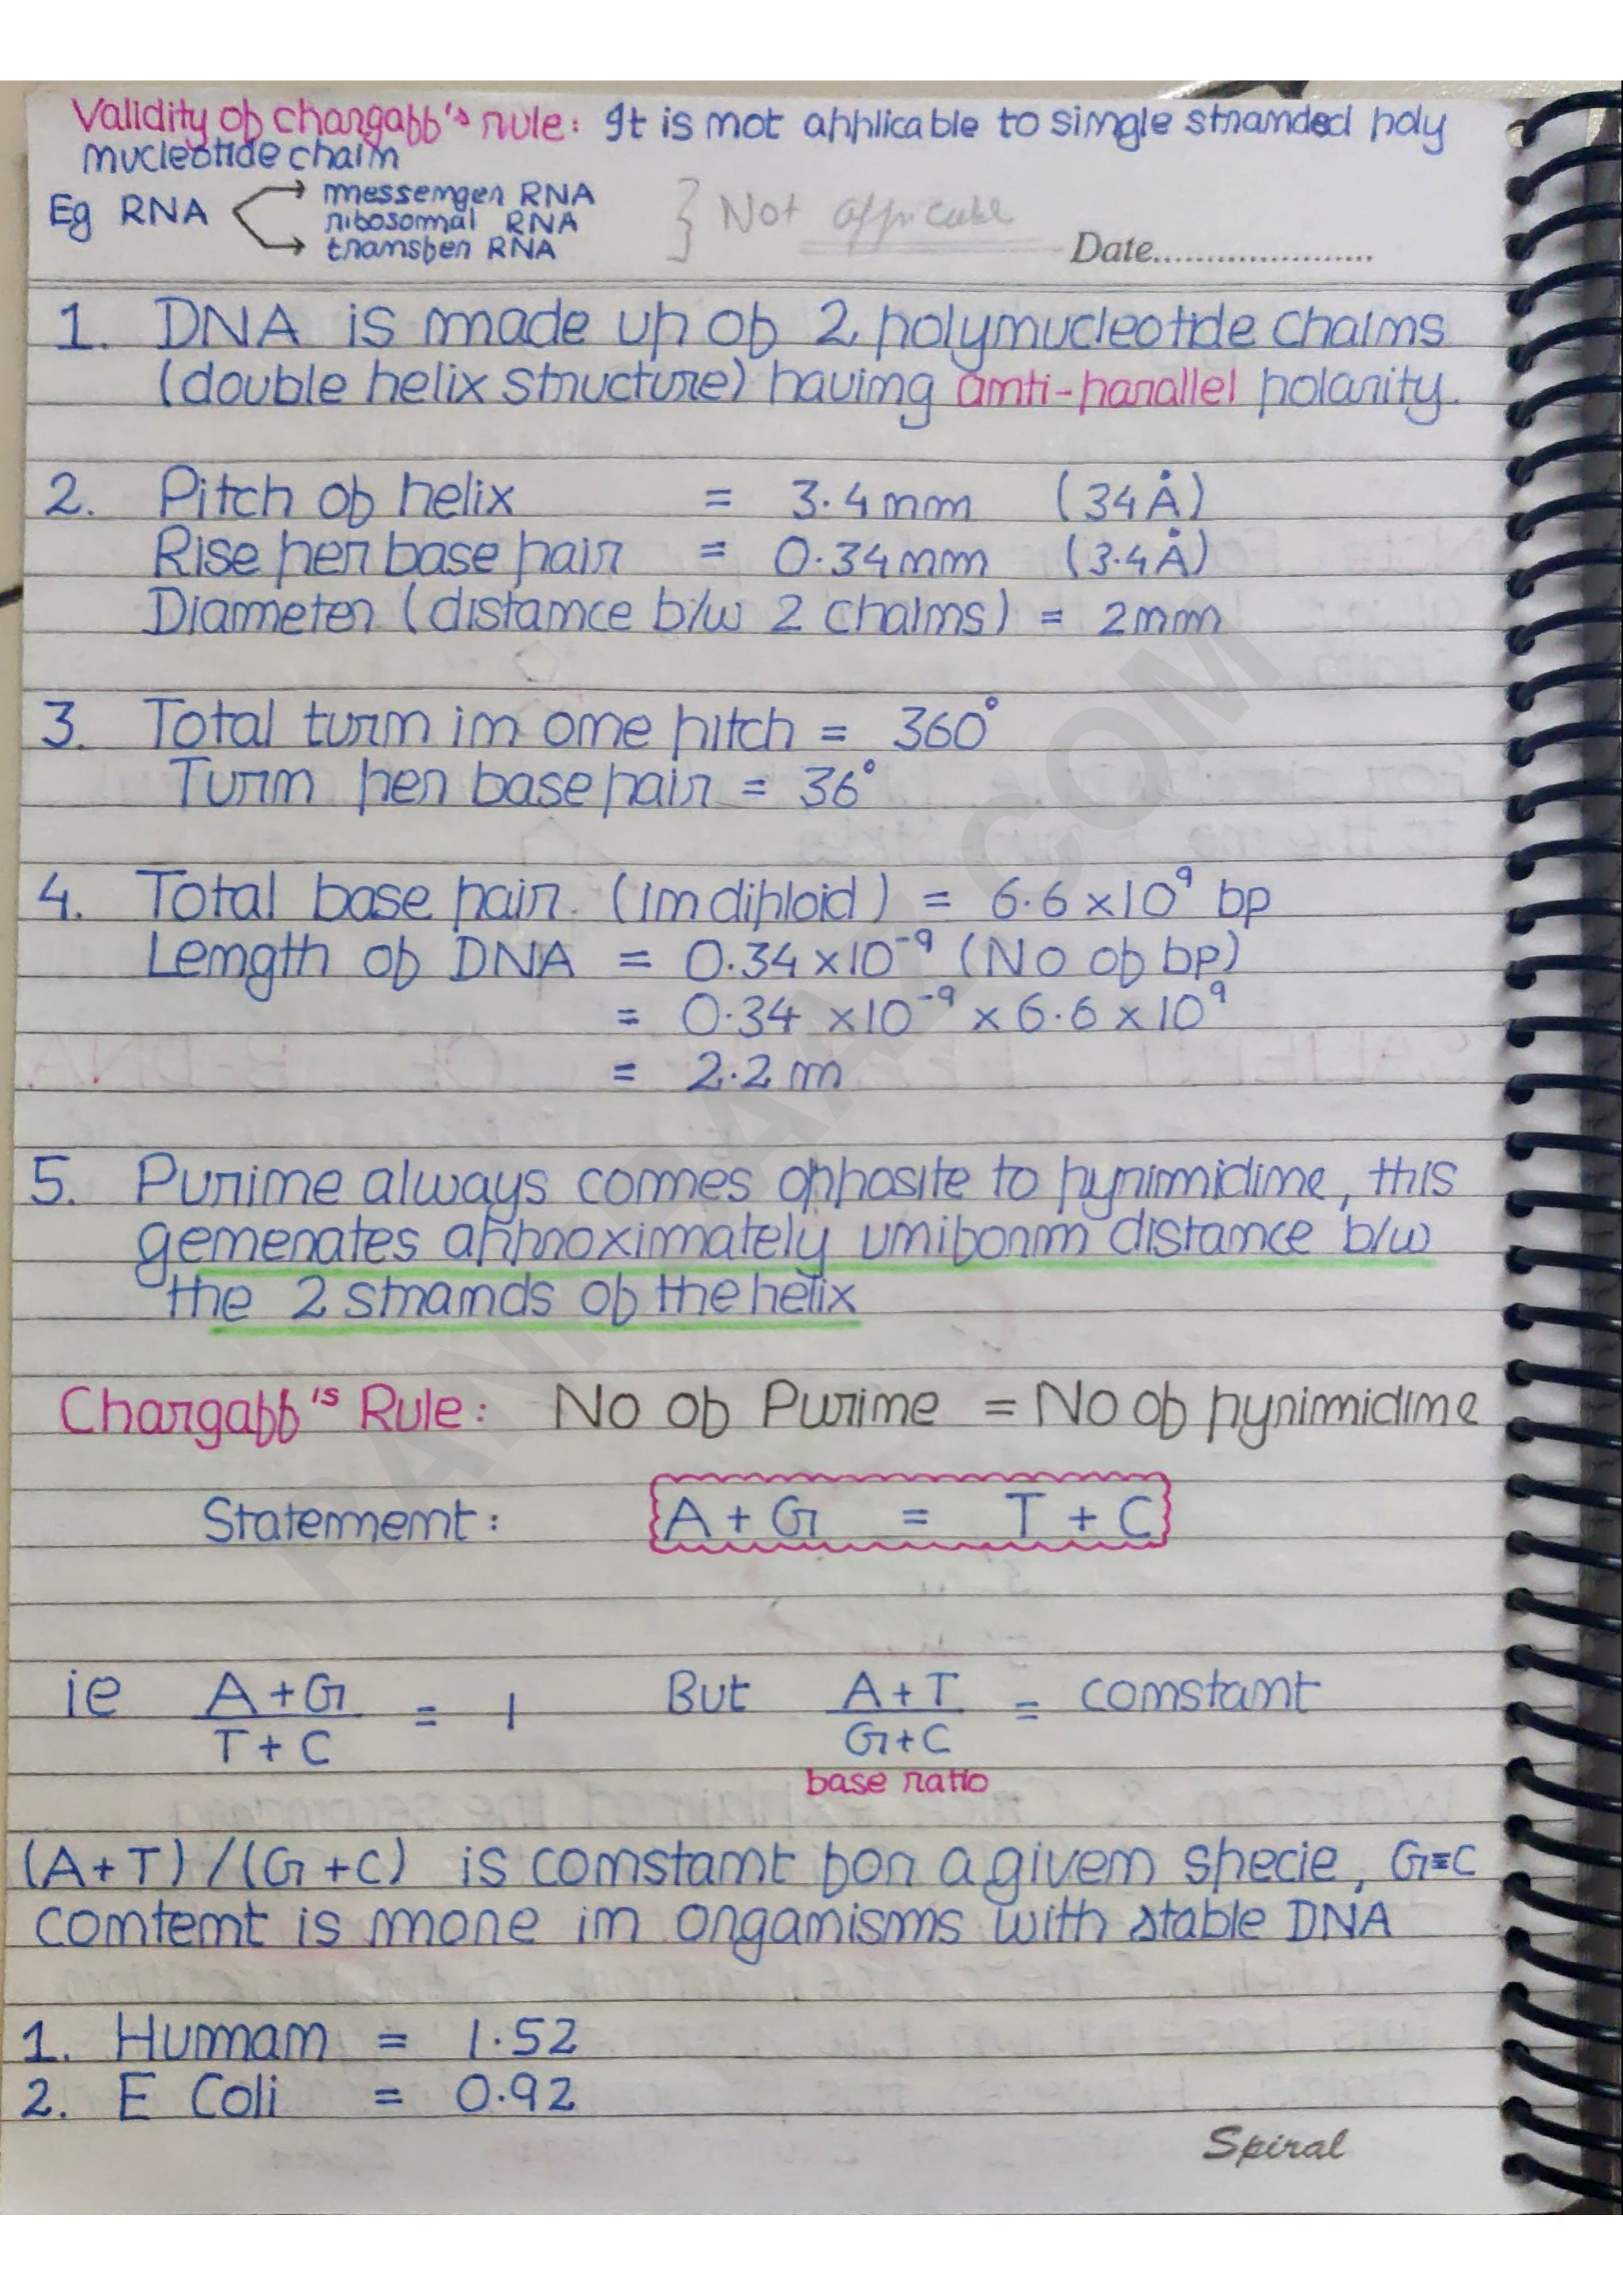 Validity of chargaff's rule: It is not applicable to single stranded poly
nucleotide chain
messenger RNA
Eg RNA ribosomal RNA } Not applicable
transfer RNA
Date......................
1. DNA is made up of 2 polynucleotide chains
(double helix structure) having anti-parallel polarity.
2. Pitch of helix = 3.4 nm (34Å)
Rise per base pair = 0.34 nm (3.4Å)
Diameter (distance b/w 2 chains) = 2 nm
3. Total turn in one pitch = 360°
Turn per base pair = 36°
4. Total base pair (in diploid) = 6.6 ×10⁹ bp
Length of DNA = 0.34 ×10⁻⁹ (No of bp)
= 0.34 ×10⁻⁹ × 6.6 × 10⁹
= 2.2 m
5. Purine always comes opposite to pyrimidine, this
generates approximately uniform distance b/w
the 2 strands of the helix
Chargaff's Rule: No of Purine = No of pyrimidine
Statement: A + G = T + C
ie A + G / T + C = 1 But A + T / G + C = constant
base ratio
(A+T) / (G+C) is constant for a given specie, G≡C
content is more in organisms with stable DNA
1. Human = 1.52
2. E Coli = 0.92
Spiral